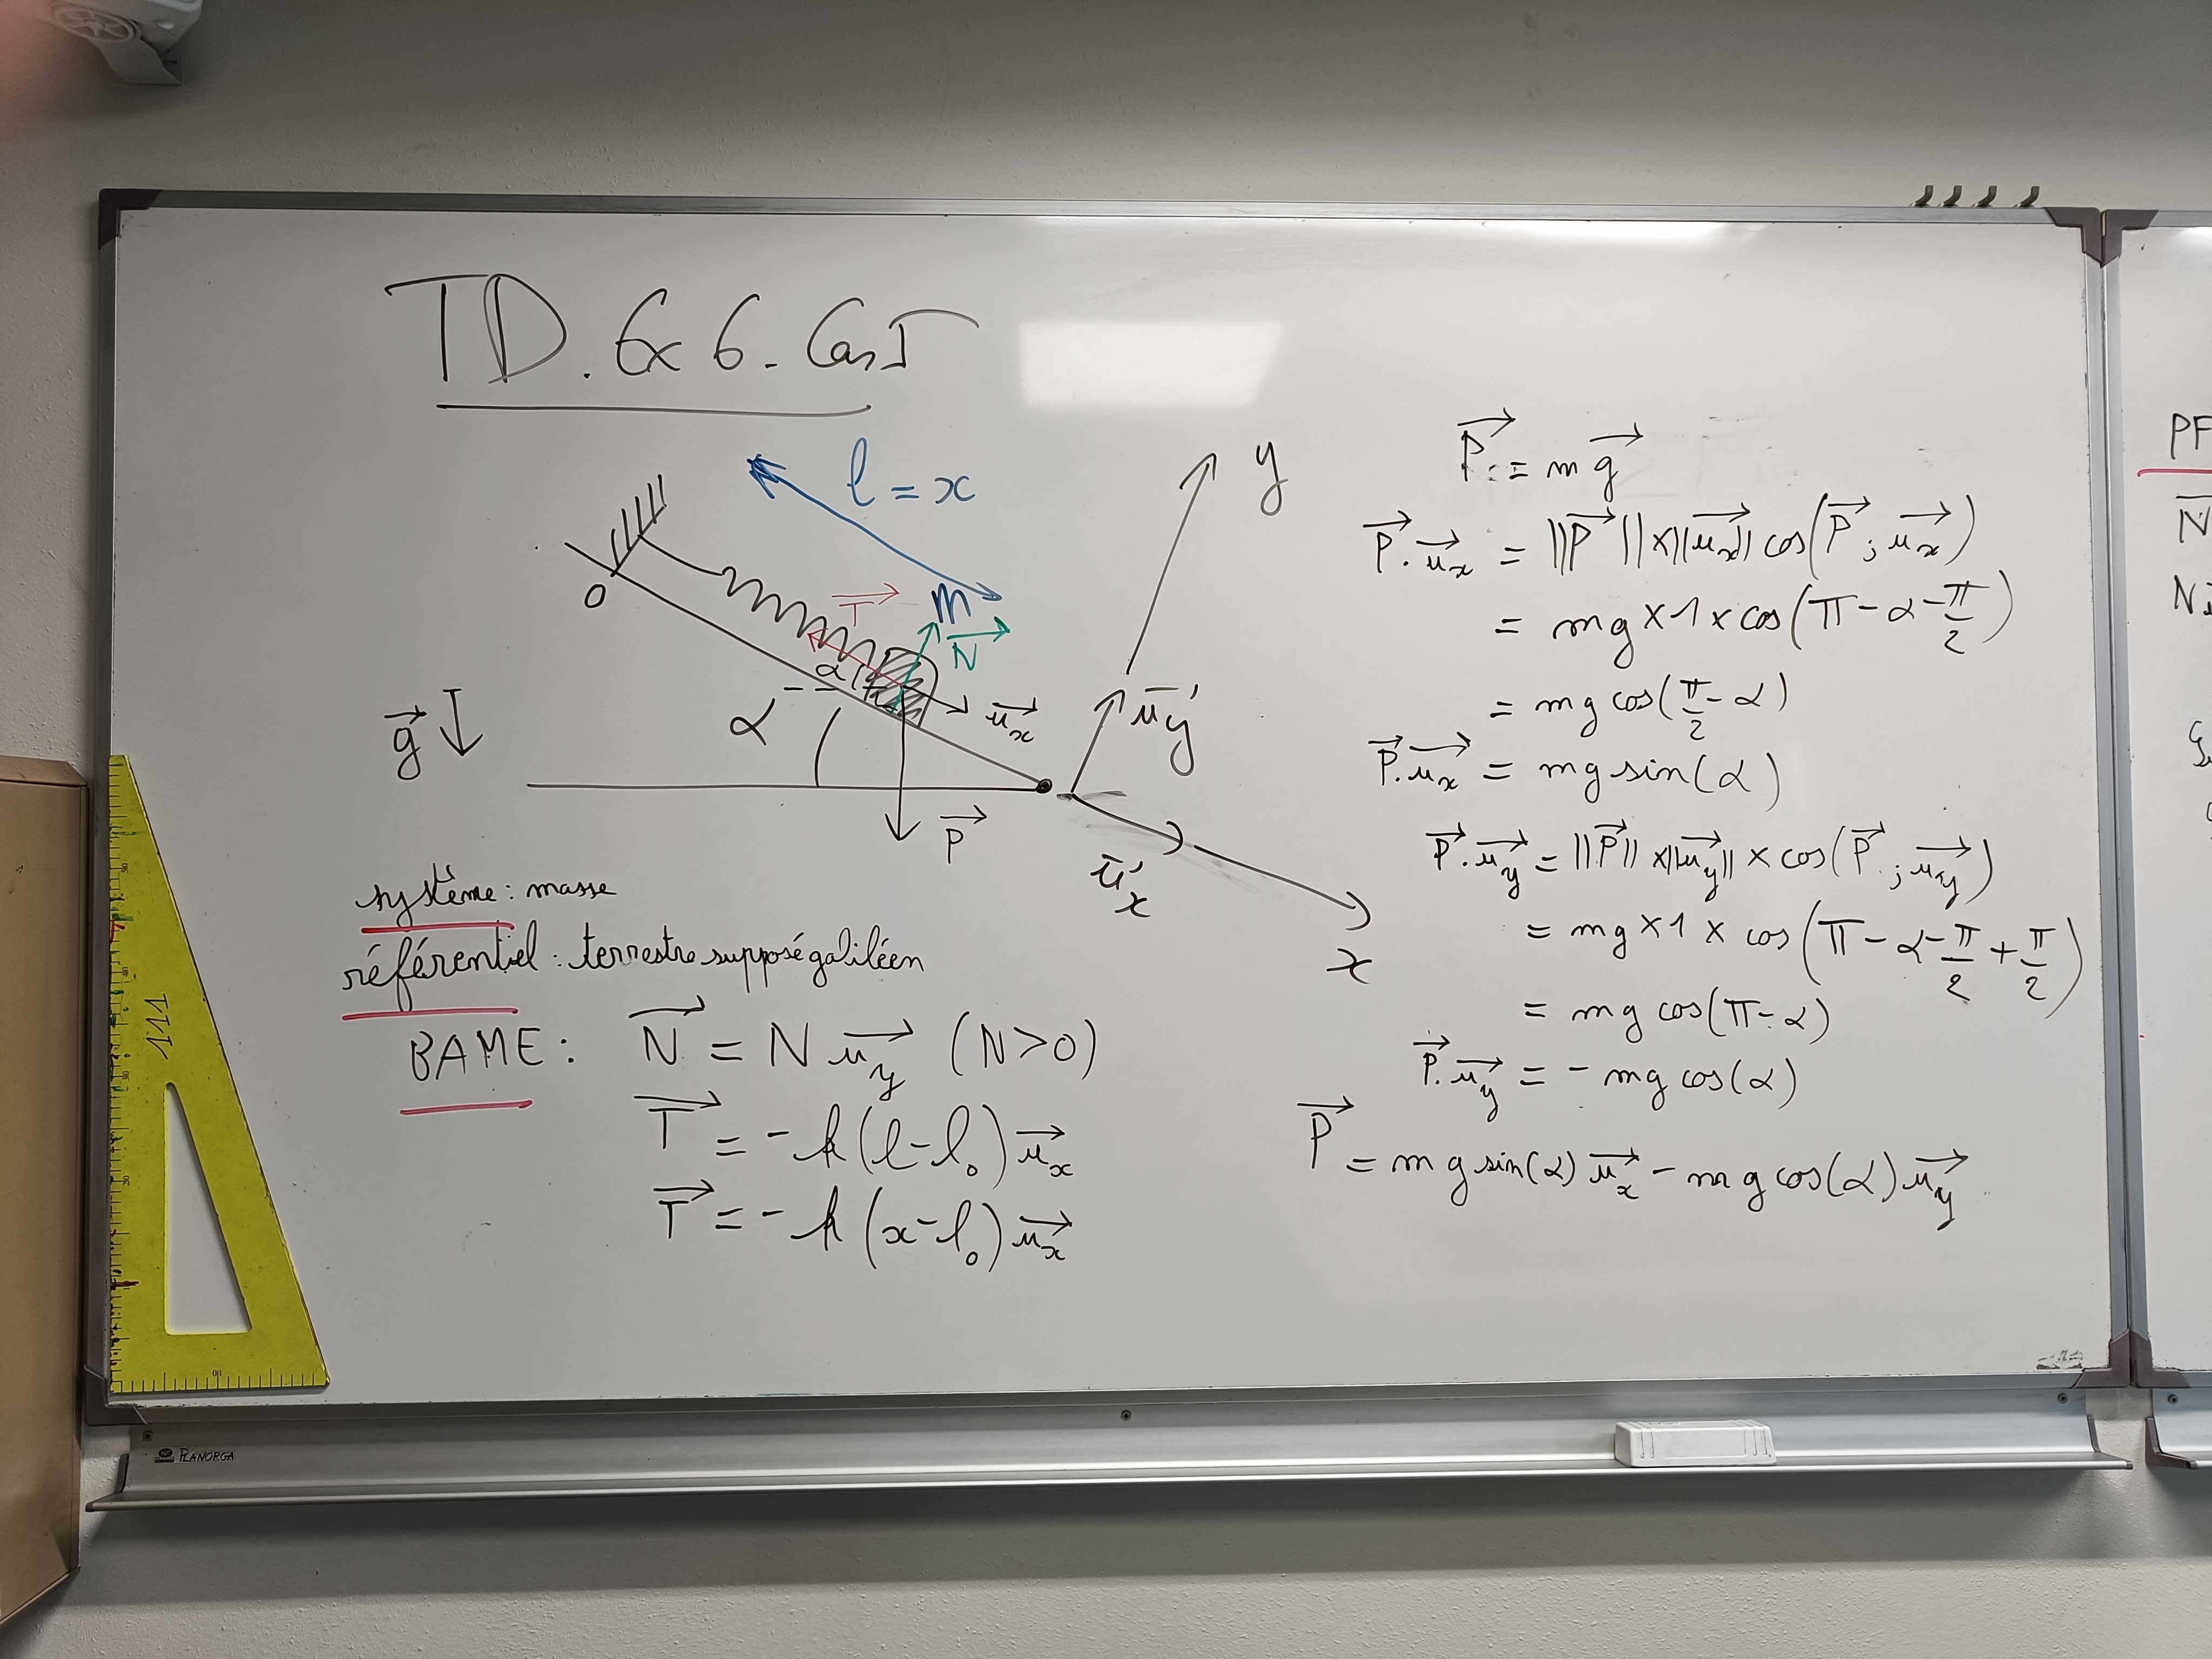 TD. Ex 6. Cas 5
l = x
y
O
T⃗
m
N⃗
α
u⃗x
α
g⃗
u⃗y
P⃗
u⃗x
x
système : masse
référentiel : terrestre supposé galiléen
BAME : N⃗ = N u⃗y (N>0)
T⃗ = -k(l-l₀) u⃗x
T⃗ = -k(x-l₀) u⃗x
P⃗ = m g⃗
P⃗.u⃗x = ||P⃗|| x ||u⃗x|| cos(P⃗ ; u⃗x)
= mg x 1 x cos(π - α - π/2)
= mg cos(π/2 - α)
P⃗.u⃗x = mg sin(α)
P⃗.u⃗y = ||P⃗|| x ||u⃗y|| x cos(P⃗ ; u⃗y)
= mg x 1 x cos(π - α - π/2 + π/2)
= mg cos(π - α)
P⃗.u⃗y = - mg cos(α)
P⃗ = mg sin(α) u⃗x - mg cos(α) u⃗y
PF
N
111
PLANORGA